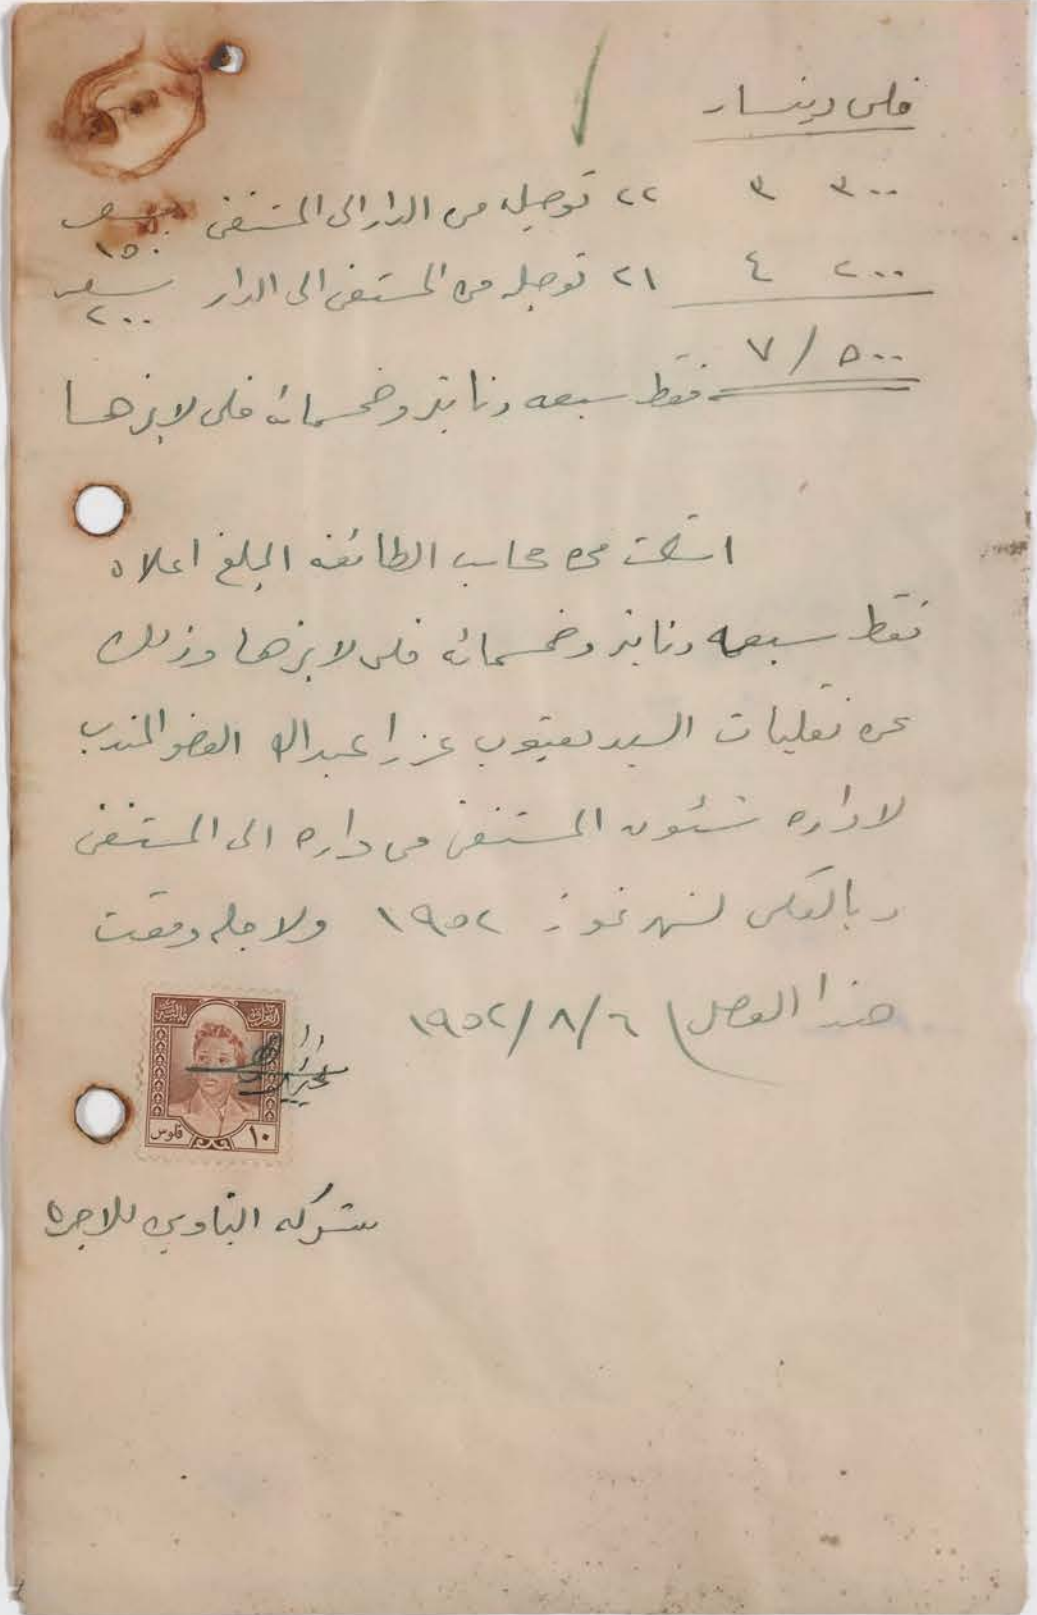 فلس دينار
٣٠٠ ٣ ٢٢ توصيله من الدار الى المستشفى بسعر ١٥٠
٢٠٠ ٤ ٢١ توصيله من المستشفى الى الدار بسعر ٢٠٠
٥٠٠ / ٧
فقط سبعه دنانير وخمسمائة فلس لا غيرها
استلمت من محاسب الطائفه المبلغ اعلاه
فقط سبعه دنانير وخمسمائة فلس لا غيرها وذلك
عن نقليات السيد يعقوب عزرا عبدالله العضو المنتدب
لاداره شئون المستشفى من داره الى المستشفى
وبالعكس لشهر تموز ١٩٥٢ ولاجله وقعت
هذا الوصل ٦/٨/١٩٥٢
١٠ فلوس
شركه للاجره